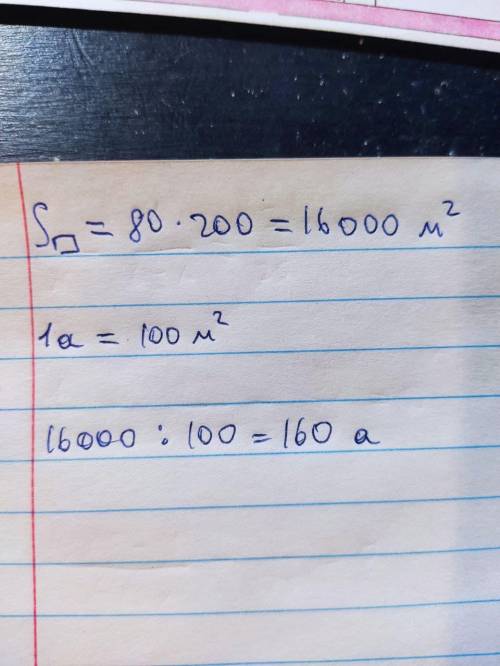 S▭ = 80 · 200 = 16000 м²
1а = 100 м²
16000 : 100 = 160 а